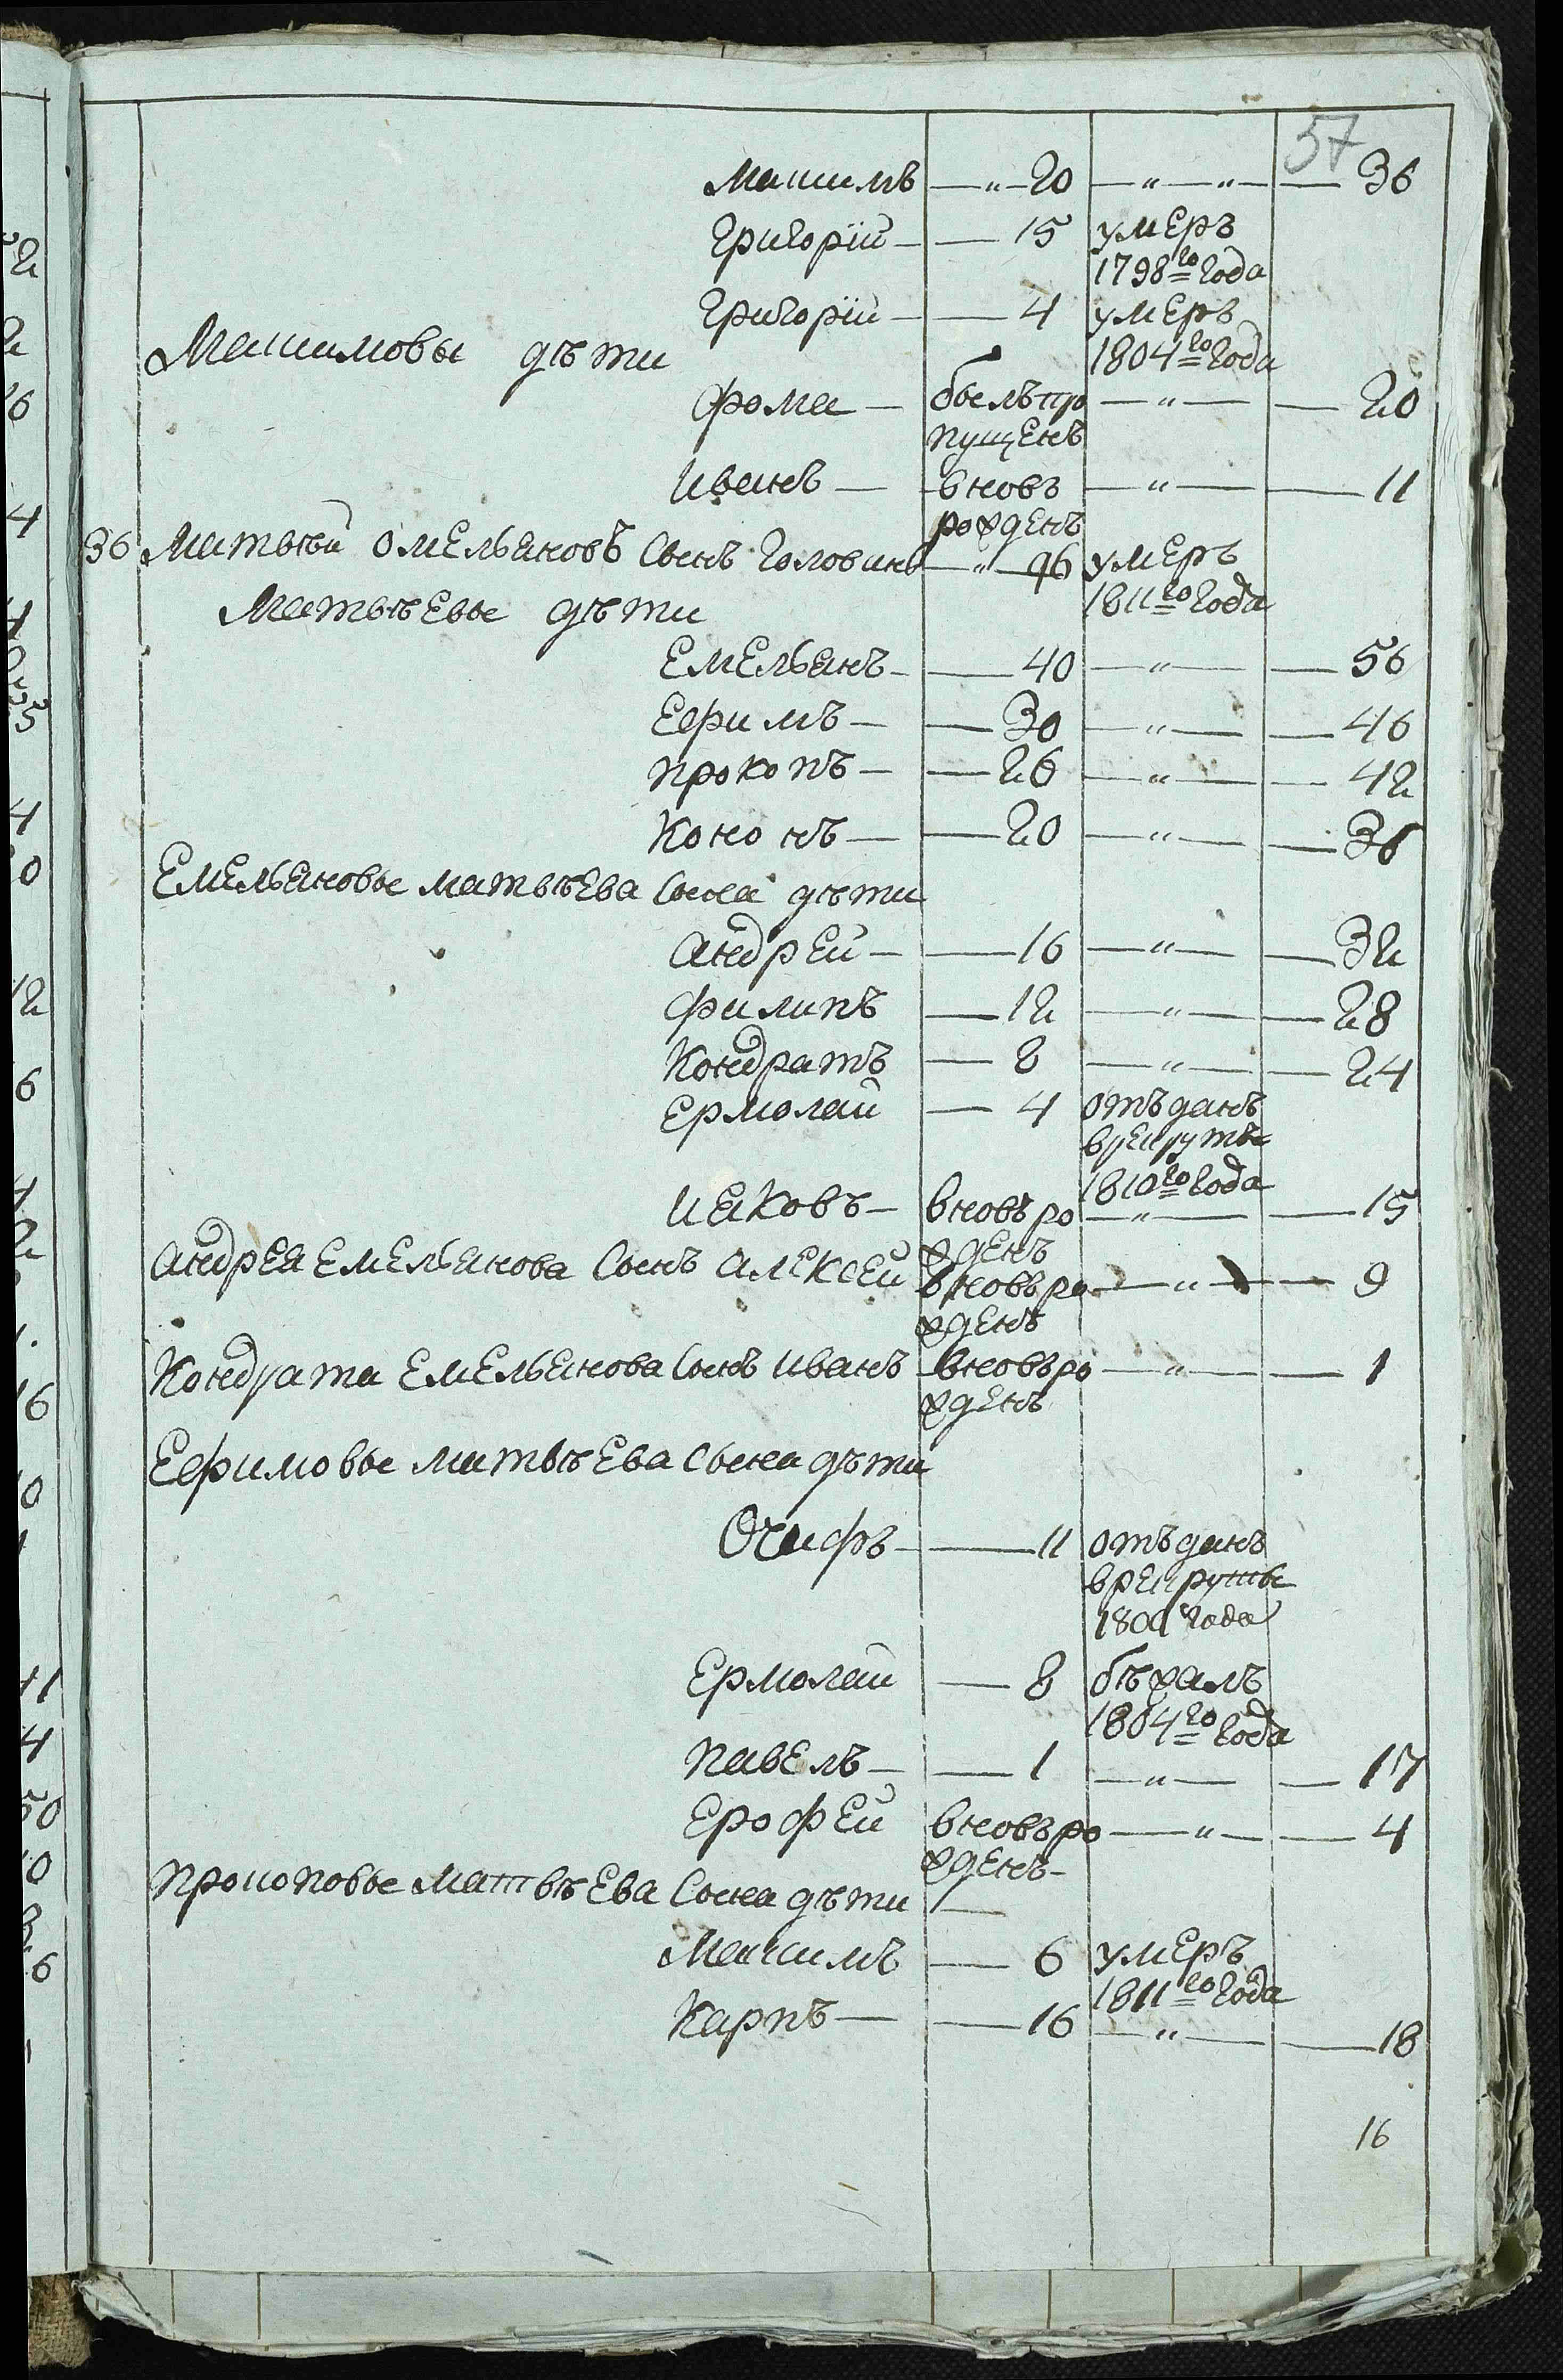 57
Максимъ — " — 20 — " — " — 36
Григорїй — 15 умеръ
1798го года
Григорїй — 4 умеръ
1804го года
Максимовы дѣти
Фома — былъ про — " — 20
пущенъ
Иванъ — вновь — " — 11
рожденъ
36 Матвѣй Омельяновъ сынъ Головинъ — " — 96 умеръ
1811го года
Матвѣевы дѣти
Емельянъ — 40 — " — 56
Ефимъ — 30 — " — 46
Прокопъ — 26 — " — 42
Кононъ — 20 — " — 36
Емельяновы Матвѣева сына дѣти
Андрей — 16 — " — 32
Филипъ — 12 — " — 28
Кондратъ — 8 — " — 24
Ермолай — 4 отъданъ
врекруты
1810го года
Ияковъ — вновь ро — " — 15
жденъ
Андрея Емельянова сынъ Алексей вновь ро — " — 9
жденъ
Кондрата Емельянова сынъ Иванъ вновь ро — " — 1
жденъ
Ефимовы Матвѣева сына дѣти
Осифъ — 11 отъданъ
врекруты
года
Ермолай — 8 бѣжалъ
1804го года
Павелъ — 1 — " — 17
Ерофей вновь ро — " — 4
жденъ
Прокоповы Матвѣева сына дѣти
Максимъ — 6 умеръ
1811го года
Карпъ — 16 — " — 18
16